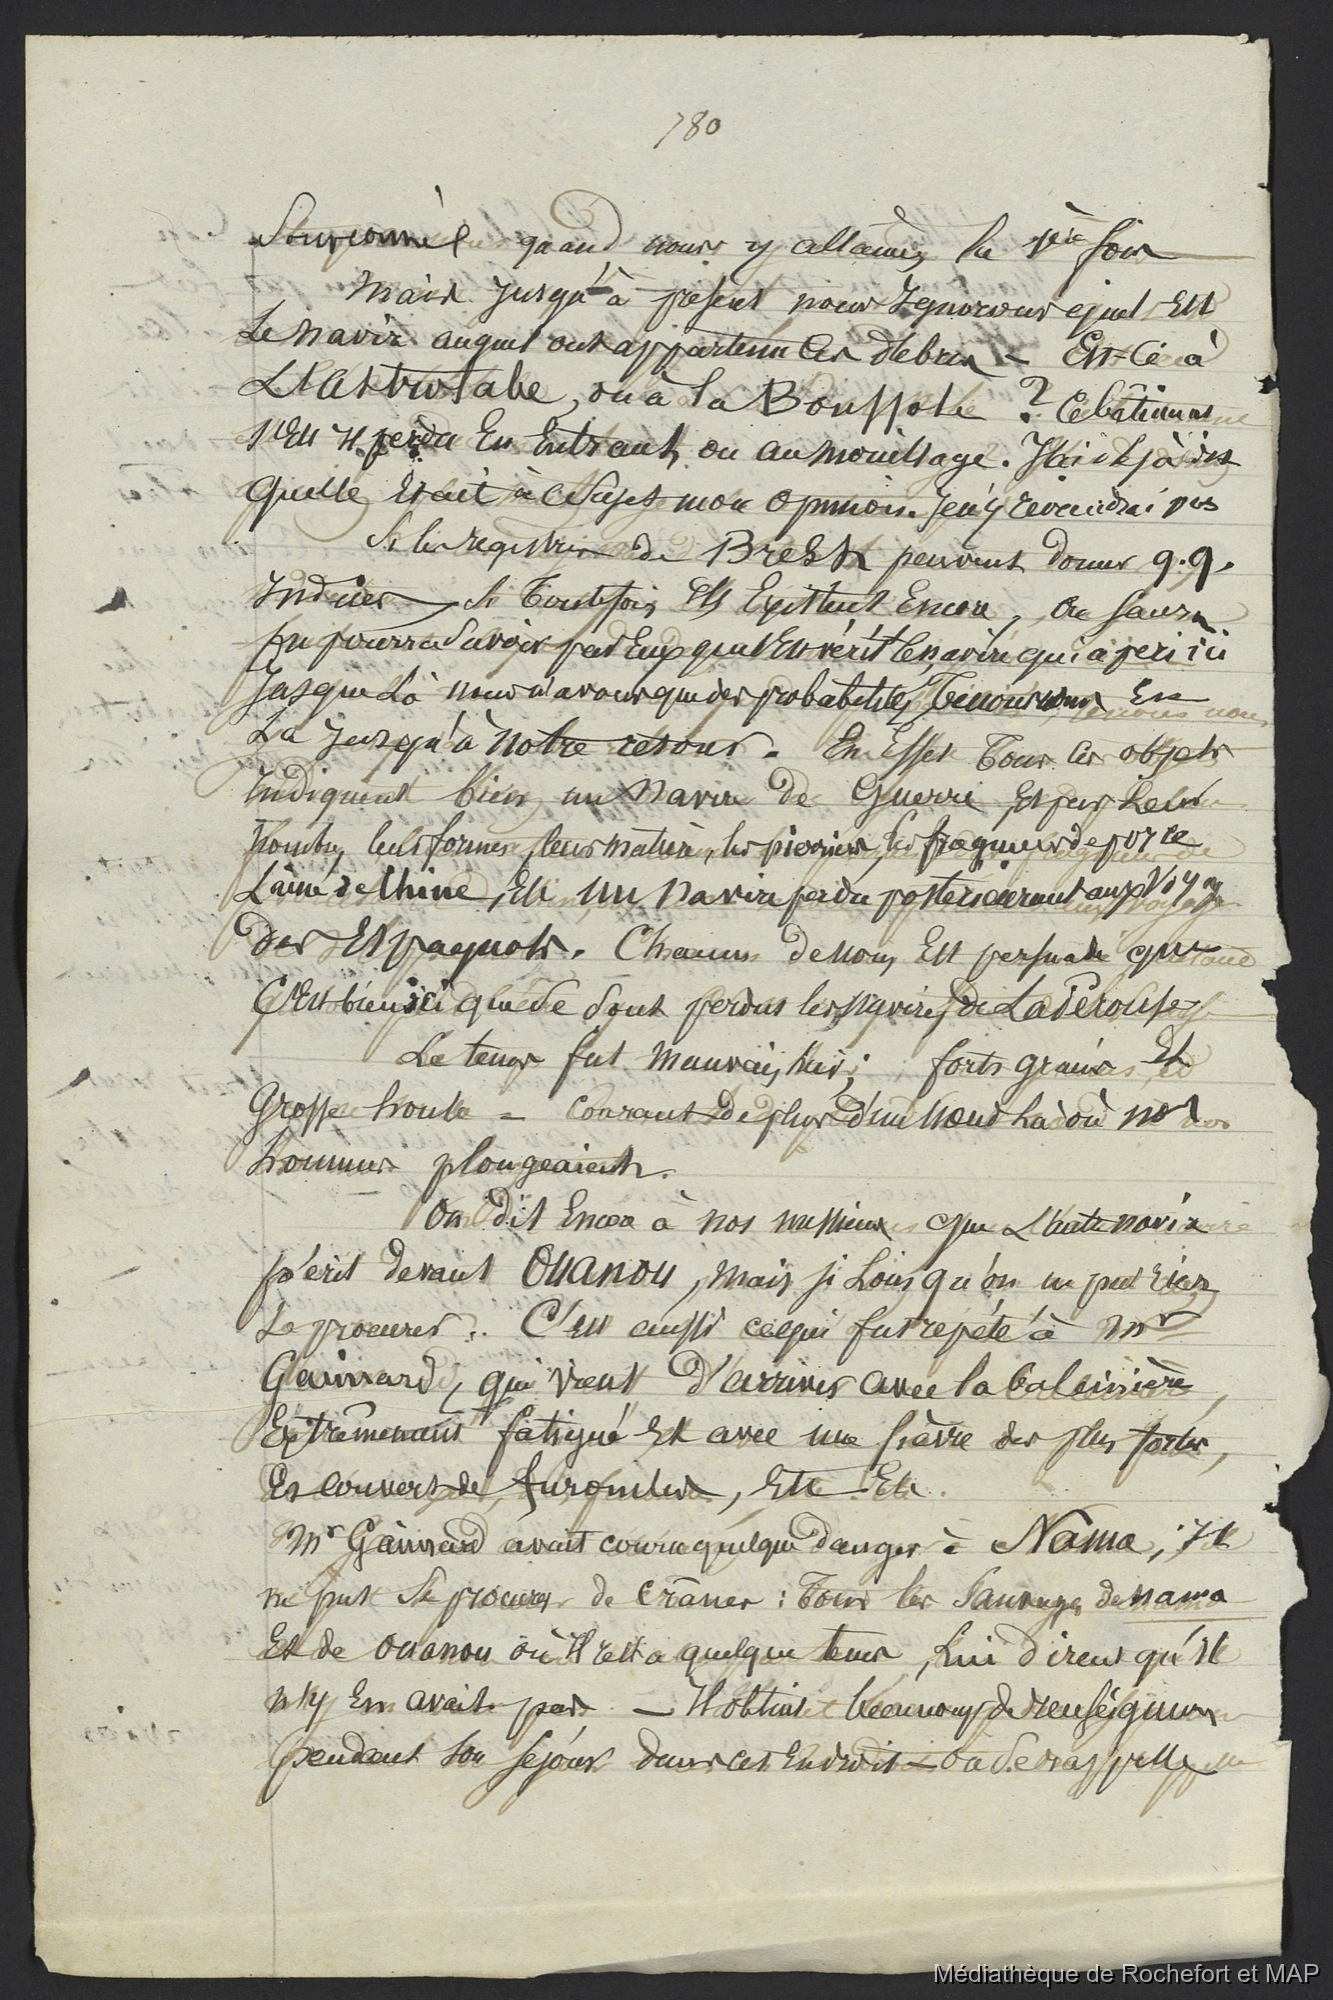 780
Soupçonné quand nous y allames la 1ère fois
Mais jusqu'à présent nous Ignorons quel Est
Le navire auquel ont appartenu ces débris - Est-ce à
L'Astrolabe, ou à La Boussole ? Ce bâtiment
s'Est il perdu En Entrant, ou au mouillage. J'ai déjà dit
quelle Etait à ce sujet mon opinion. Je n'y reviendrai pas
Si les registres de Brest peuvent donner q.q.
Indices si toutefois Ils Existent Encore, on saura
on pourra savoir par Eux quel Est le navire qui a peri ici
Jusque là nous n'avons que des probabilités, tenons nous En
La Jusqu'à notre retour. En Effet tous les objets
Indiquent bien un navire de Guerre, Et par Leur
nombre, leurs formes, leurs matières, les pierriers, les fragmens de porce
Laine de Chine, Et un navire perdu postérieurement aux Voyages
Des Espagnols. Chacun de nous Est persuadé que
C'Est bien ici que se sont perdus les navires de La Pérouse
Le tems fut mauvais hier ; forts grains Et
Grosse houle = Courant de plus d'un noeud Là où nos
hommes plongeaient.
On dit Encore à nos messieurs que L'autre navire
périt devant Ouanou, mais si Loin qu'on ne put rien
se procurer. C'Est aussi ce qui fut répété à Mr
Gaimard, qui vient d'arriver avec la baleinière,
Extrêmement fatigué Et avec une fièvre des plus fortes,
Et couvert de furoncles, Etc. Etc.
Mr Gaimard avait couru quelque danger à Nama ; Il
ne put se procurer de crânes : tous les Sauvages de nama
Et de ouanou où Il resta quelque tems, Lui dirent qu'Il
n'y En avait pas. — Il obtint beaucoup de renseignemens
pendant son séjour dans cet Endroit — On se rappelle
Médiathèque de Rochefort et MAP